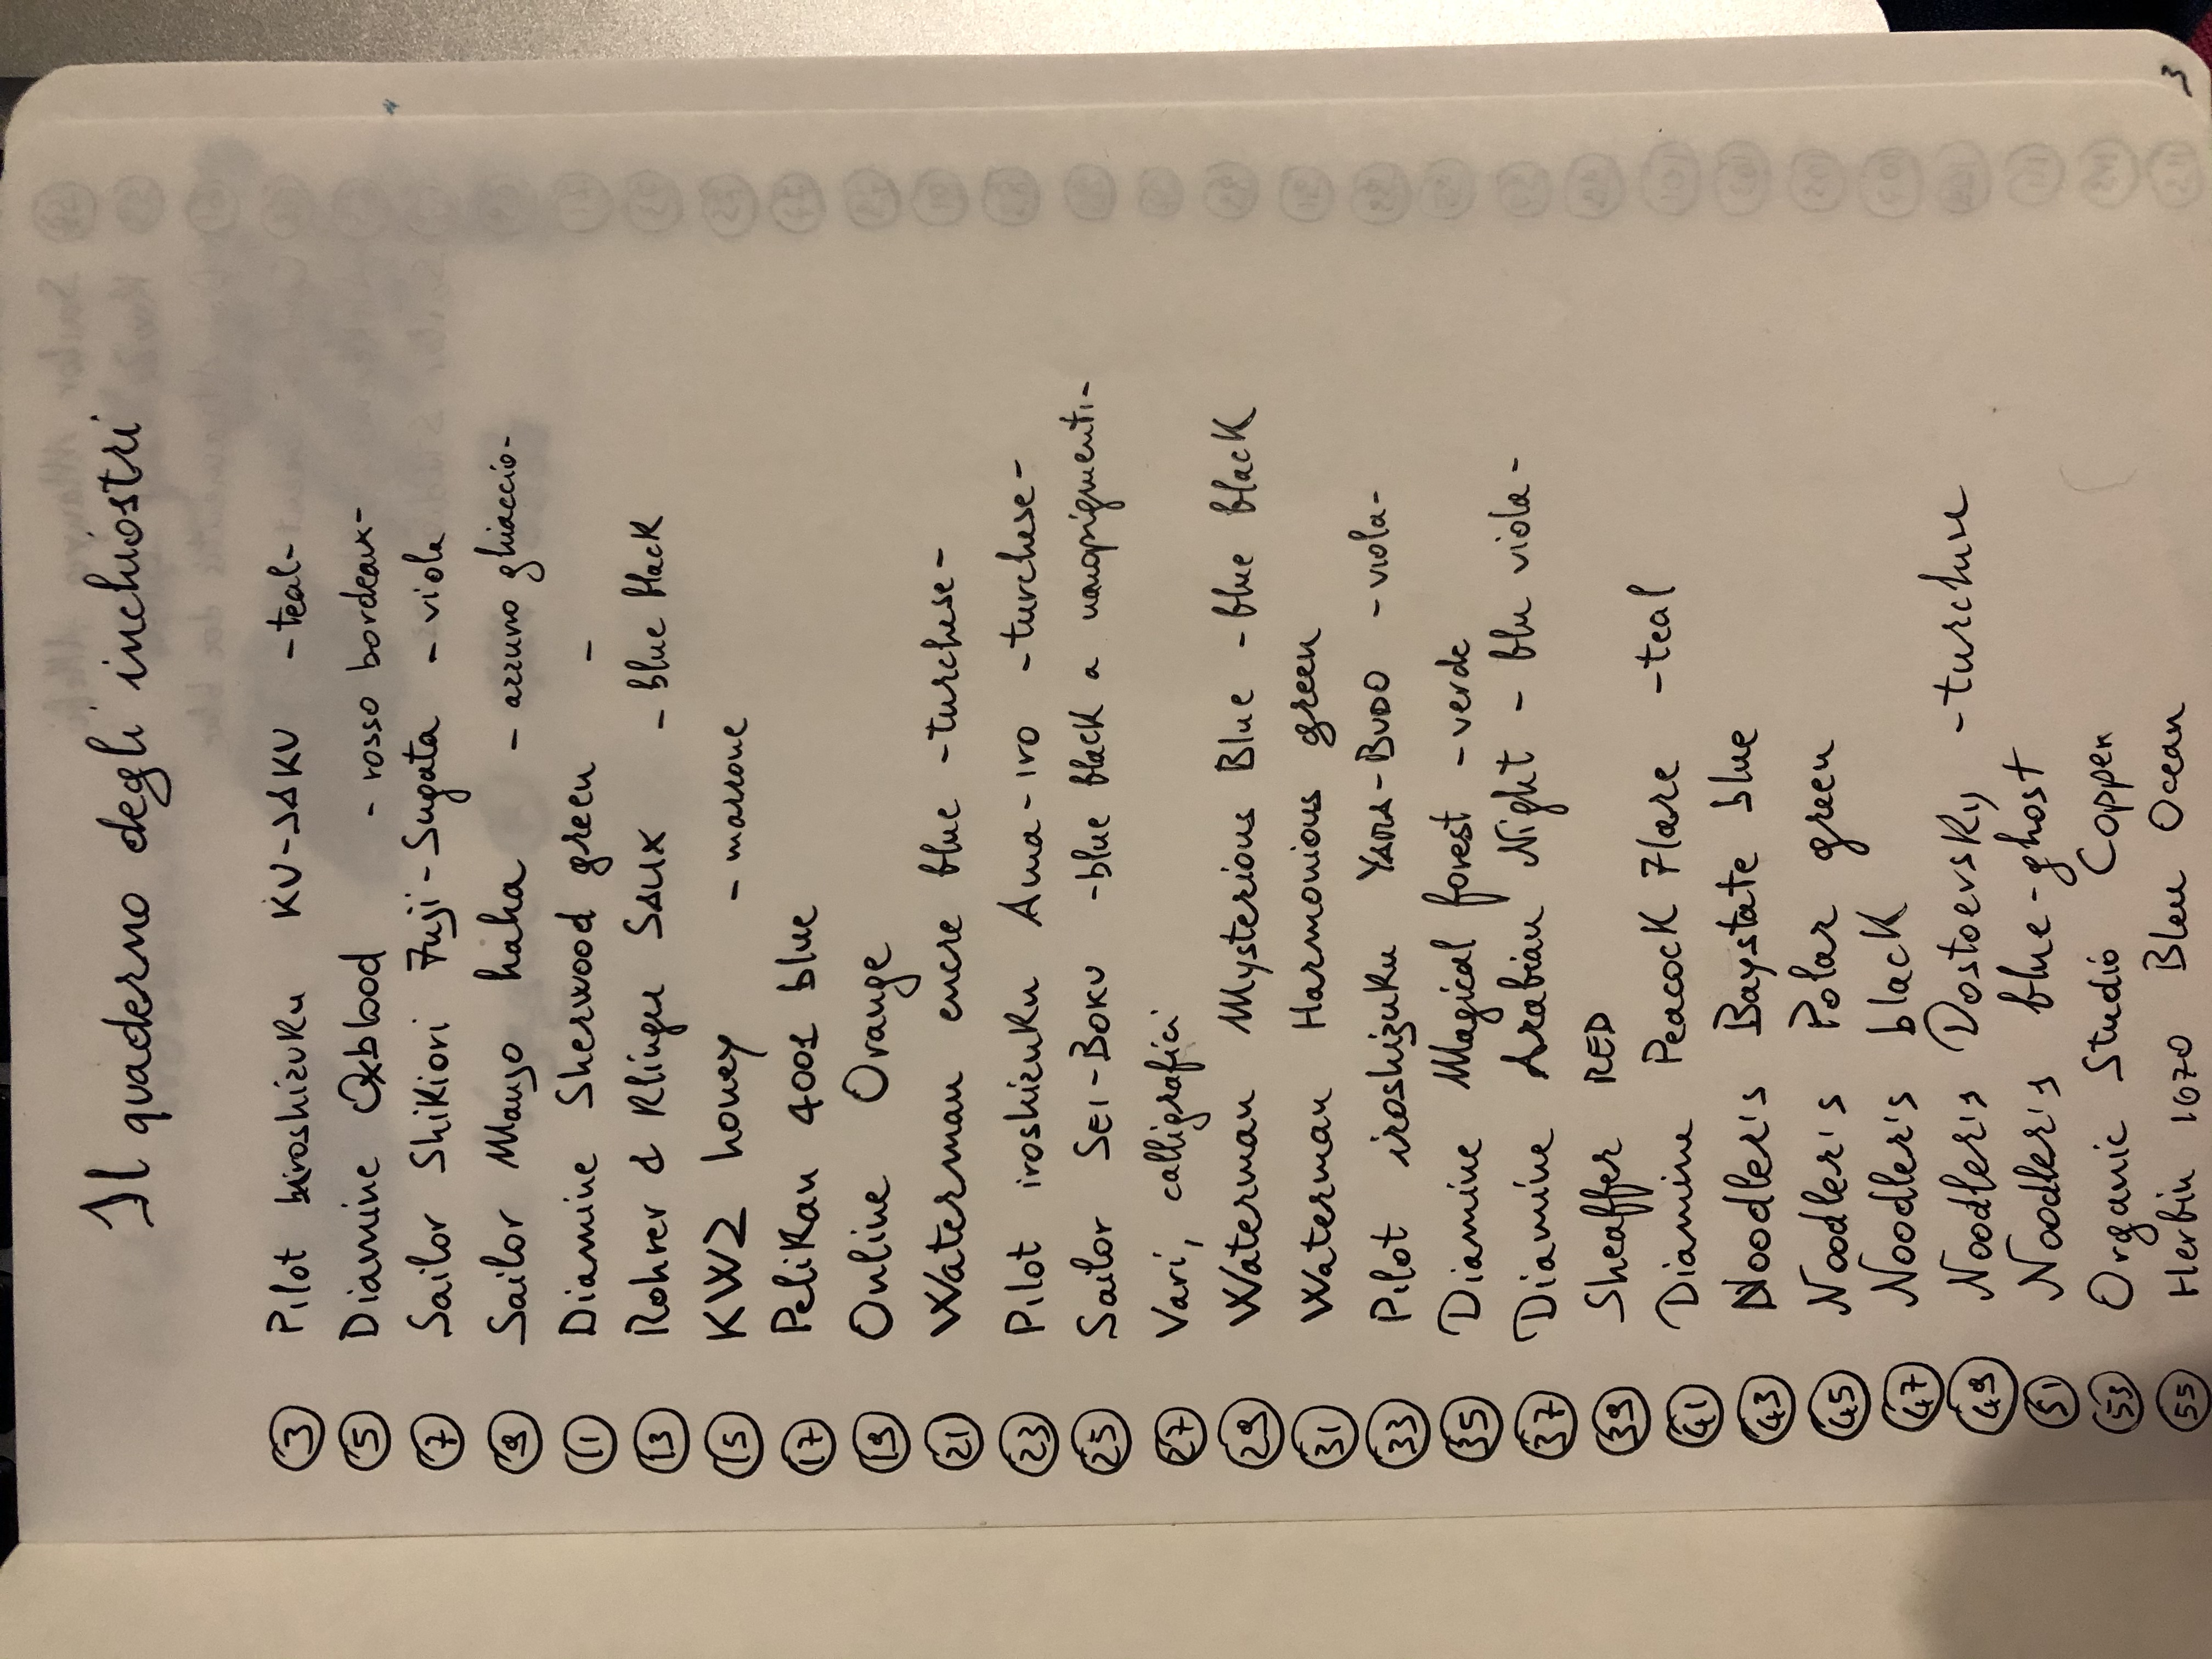 3
Il quaderno degli inchiostri
3 Pilot iroshizuku KU-JAKU -teal-
5 Diamine Oxblood - rosso bordeaux-
7 Sailor Shikiori Fuji-Sugata - viola
9 Sailor Manyo haha - azzurro ghiaccio-
11 Diamine Sherwood green -
13 Rohrer & Klinger SALIX - blue black
15 KWZ honey - marrone
17 Pelikan 4001 blue
19 Online Orange
21 Waterman encre blue -turchese-
23 Pilot iroshizuku Ama-iro -turchese-
25 Sailor SEI-BOKU -blue black a nanopigmenti-
27 Vari, calligrafici
29 Waterman Mysterious Blue -blue black
31 Waterman Harmonious green
33 Pilot iroshizuku YAMA-BUDO -viola-
35 Diamine Magical forest -verde
37 Diamine Arabian Night - blu viola-
39 Sheaffer RED
41 Diamine Peacock Flare -teal
43 Noodler's Baystate blue
45 Noodler's Polar green
47 Noodler's black
49 Noodler's Dostoevsky -turchese
51 Noodler's blue-ghost
53 Organic Studio Copper
55 Herbin 1670 Bleu Ocean